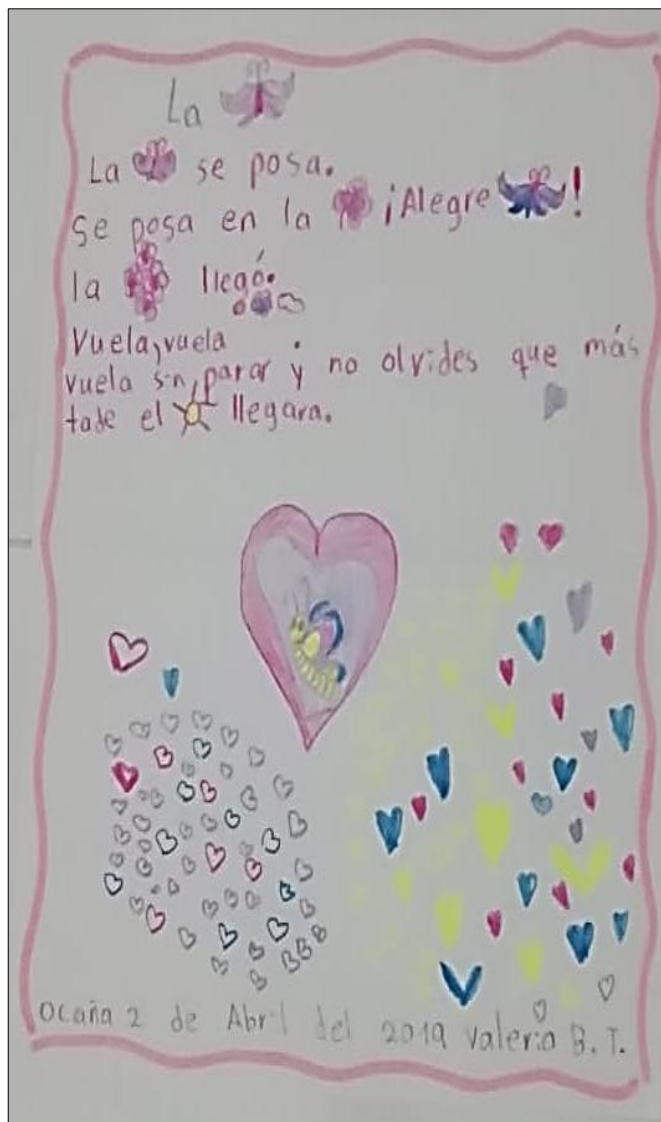 La
La se posa.
se posa en la ¡Alegre !
la llegó.
Vuela, vuela
vuela sin parar y no olvides que más
tade el llegara.
Ocaña 2 de Abril del 2019 Valeria B. T.